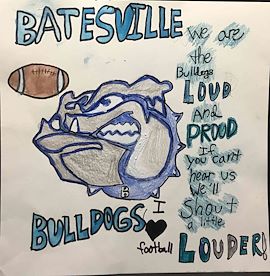 BATESVILLE
We are
the
Bulldogs
LOUD
And
PROUD
If
you can't
hear us
we'll
Shout
a little
LOUDER!
B
I
BULLDOGS
football